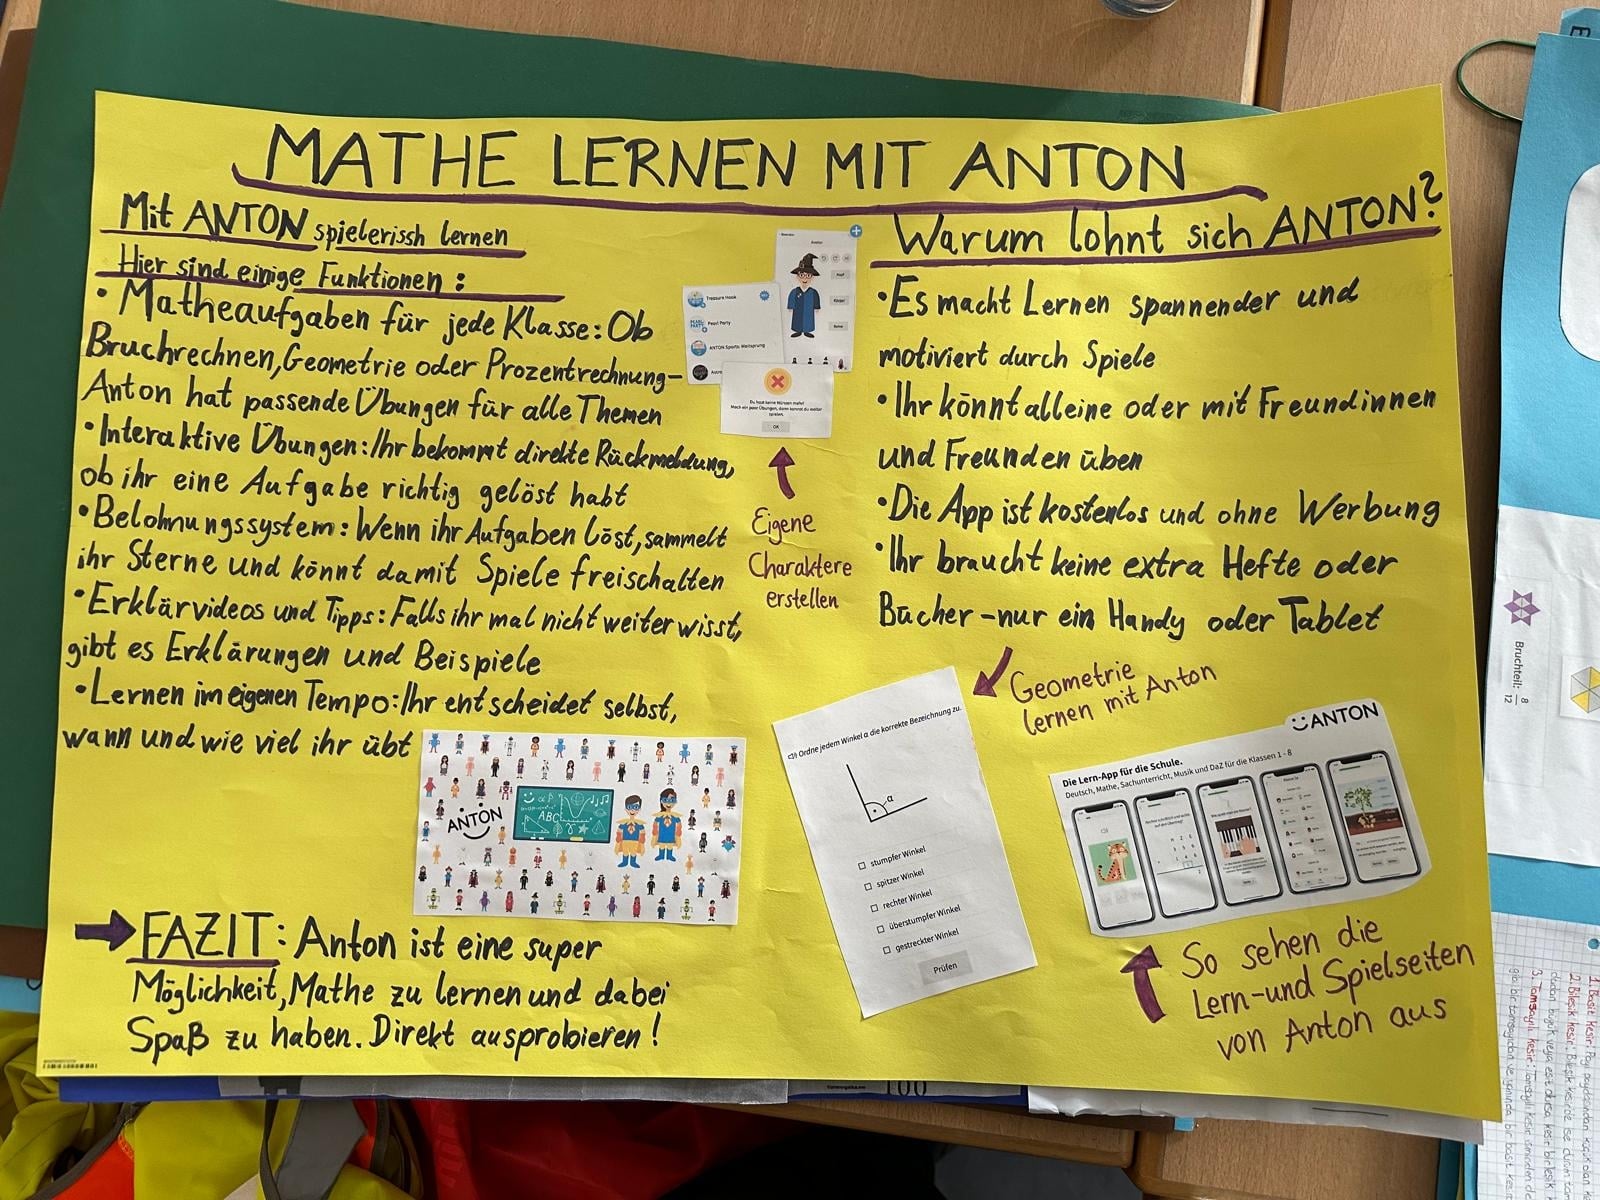 MATHE LERNEN MIT ANTON
Mit ANTON spielerissh lernen
Hier sind einige Funktionen:
• Matheaufgaben für jede Klasse: Ob
Bruchrechnen, Geometrie oder Prozentrechnung-
Anton hat passende Übungen für alle Themen
• Interaktive Übungen: Ihr bekommt direkte Rückmeldung,
ob ihr eine Aufgabe richtig gelöst habt
• Belohnungssystem: Wenn ihr Aufgaben löst, sammelt
ihr Sterne und könnt damit Spiele freischalten
• Erklärvideos und Tipps: Falls ihr mal nicht weiter wisst,
gibt es Erklärungen und Beispiele
• Lernen im eigenen Tempo: Ihr entscheidet selbst,
wann und wie viel ihr übt
ANTON
ABC
FAZIT: Anton ist eine super
Möglichkeit, Mathe zu lernen und dabei
Spaß zu haben. Direkt ausprobieren!
Treasure Hook
Pearl Party
ANTON Sports: Weitsprung
Du hast keine Münzen mehr!
Mach ein paar Übungen, dann kannst du weiter
spielen.
OK
Eigene
Charaktere
erstellen
Warum lohnt sich ANTON?
• Es macht Lernen spannender und
motiviert durch Spiele
• Ihr könnt alleine oder mit Freundinnen
und Freunden üben
• Die App ist kostenlos und ohne Werbung
• Ihr braucht keine extra Hefte oder
Bücher – nur ein Handy oder Tablet
Geometrie
lernen mit Anton
Ordne jedem Winkel α die korrekte Bezeichnung zu.
α
stumpfer Winkel
spitzer Winkel
rechter Winkel
überstumpfer Winkel
gestreckter Winkel
Prüfen
ANTON
Die Lern-App für die Schule.
Deutsch, Mathe, Sachunterricht, Musik und DaZ für die Klassen 1 - 8
So sehen die
Lern- und Spielseiten
von Anton aus
Bruchteil: 8/12
100